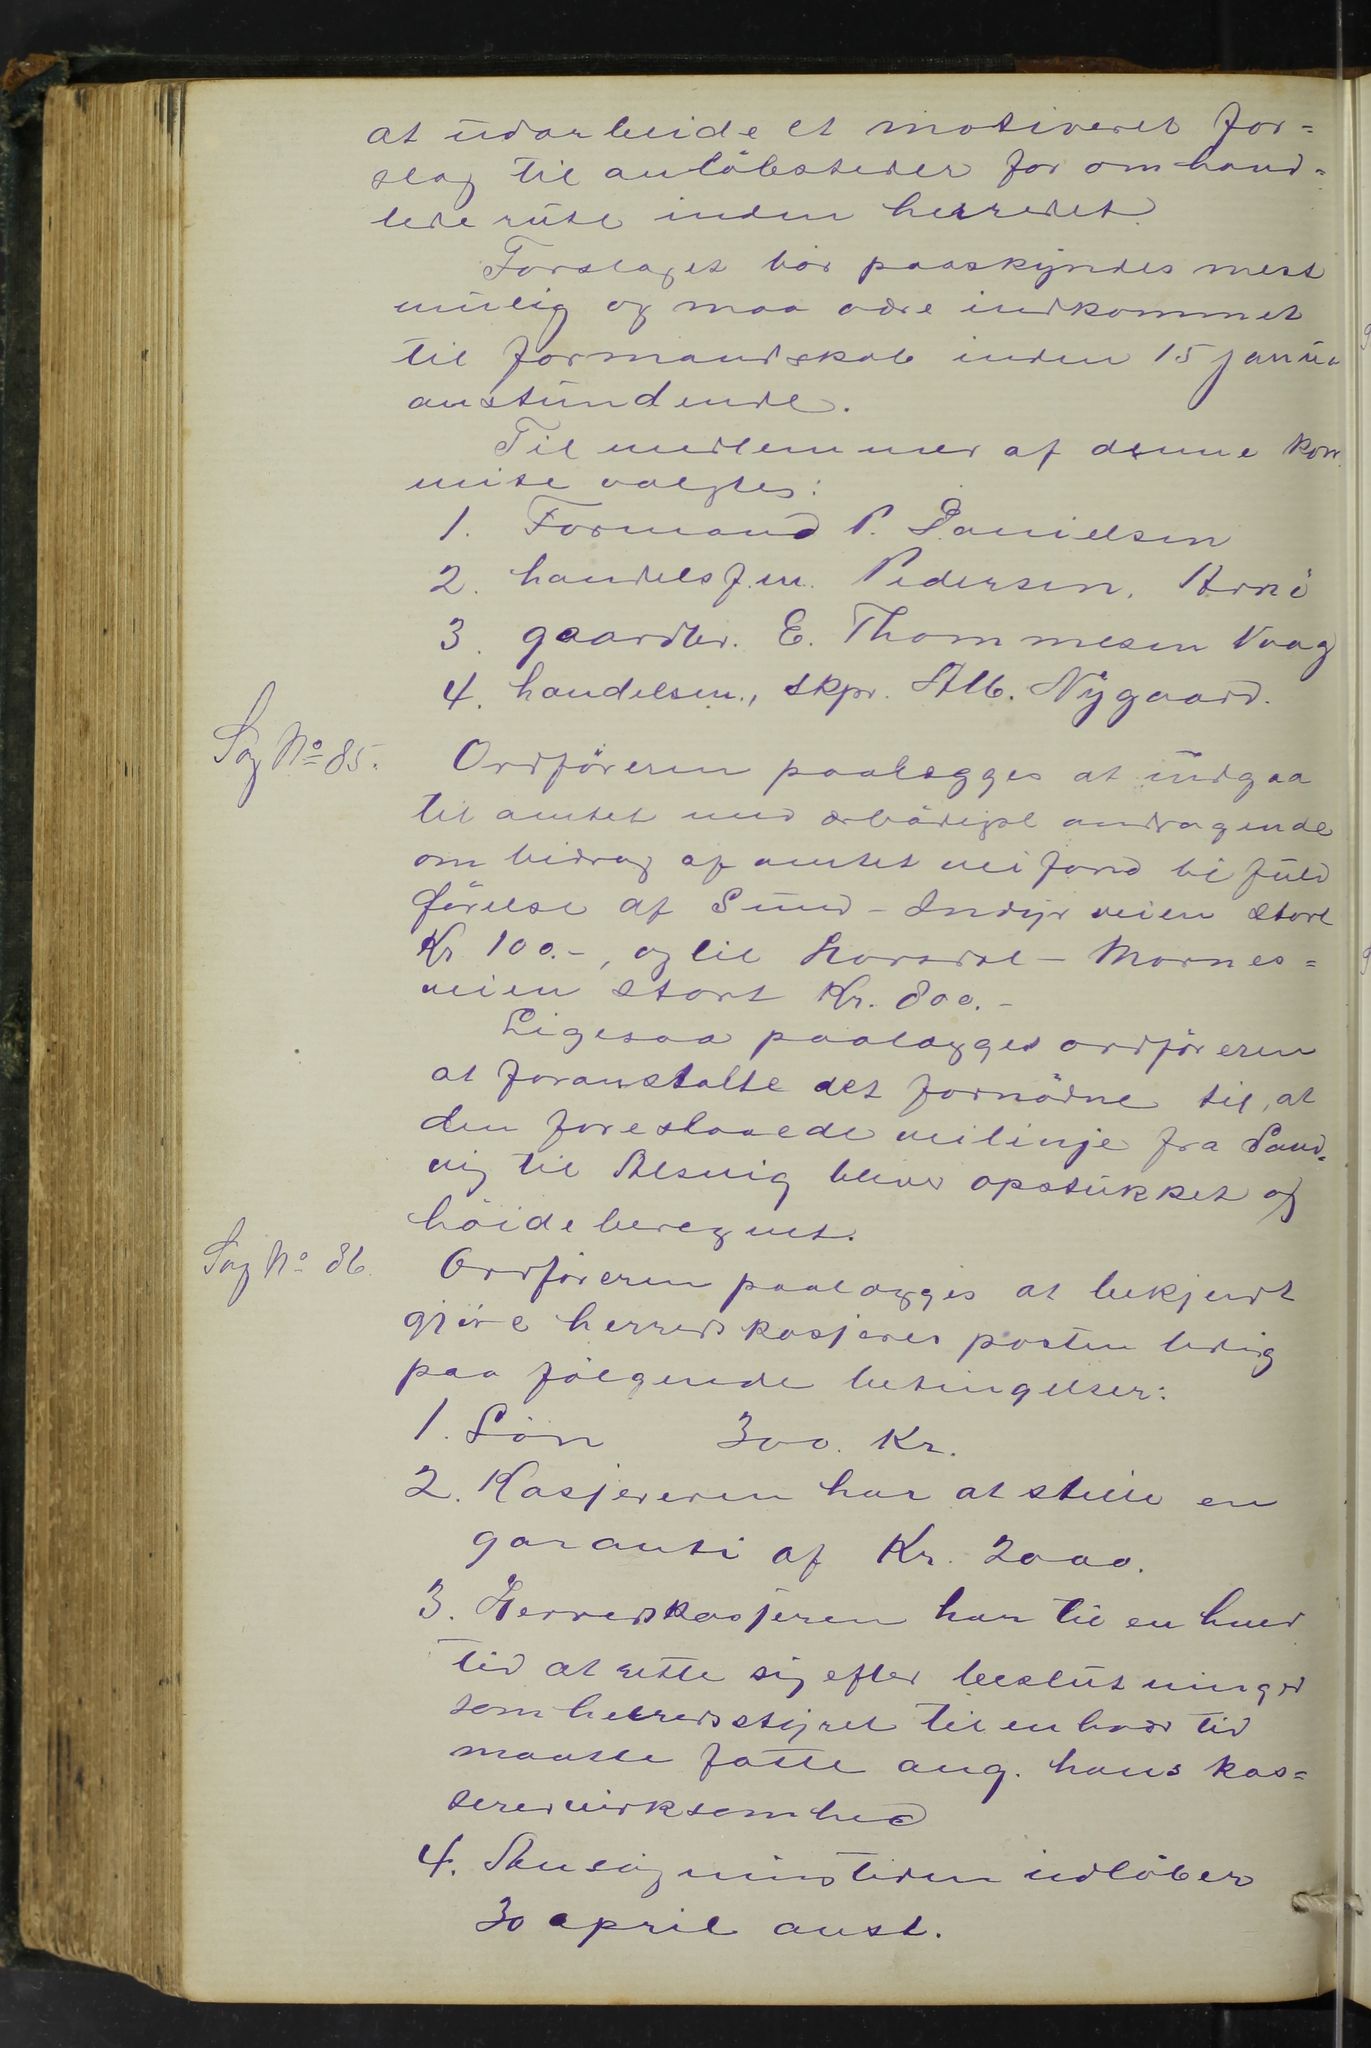 at udarbeide et motiveret for=
slag til anløbssteder for omhand=
lede rute inden herredet
Forslaget bør paaskyndes mest
mulig og maa være indkommet
til formandskab inden 15 janua
anstundende.
Til medlemmer af denne kom
mite valgtes:
1. Formand P. Danielsen
2. handelsfm. Pedersen, Arnø
3. gaardbr. E. Thommesen Vaag
4. handelsm., skpr. Alb. Nygaard.
Sag No 85. Ordføreren paalægges at indgaa
til amtet med ærbødigst andragende
om bidrag af amtets veifond til fuld
førelse af Sund - Indyr veien stort
Kr 100.-, og til Horsdal - Mornes=
veien stort Kr. 800.-
Ligesaa paalægges ordføreren
at foranstalte det fornødne til, at
den foreslaaede veilinje fra Sand=
vig til Alsvig bliver opstukket og
høideberegnet.
Sag No 86. Ordføreren paalægges at bekjendt
gjøre herredskasjererposten ledig
paa følgende betingelser:
1. Løn 300. Kr.
2. Kasjereren har at stille en
garanti af Kr. 2000.
3. Herredskasjeren har til en hver
tid at rette sig efter beslutninger
som herredsstyret til en hver tid
maatte fatte ang. hans kas=
serervirksomhed
4. Ansøgningstiden udløber
30 april anst.